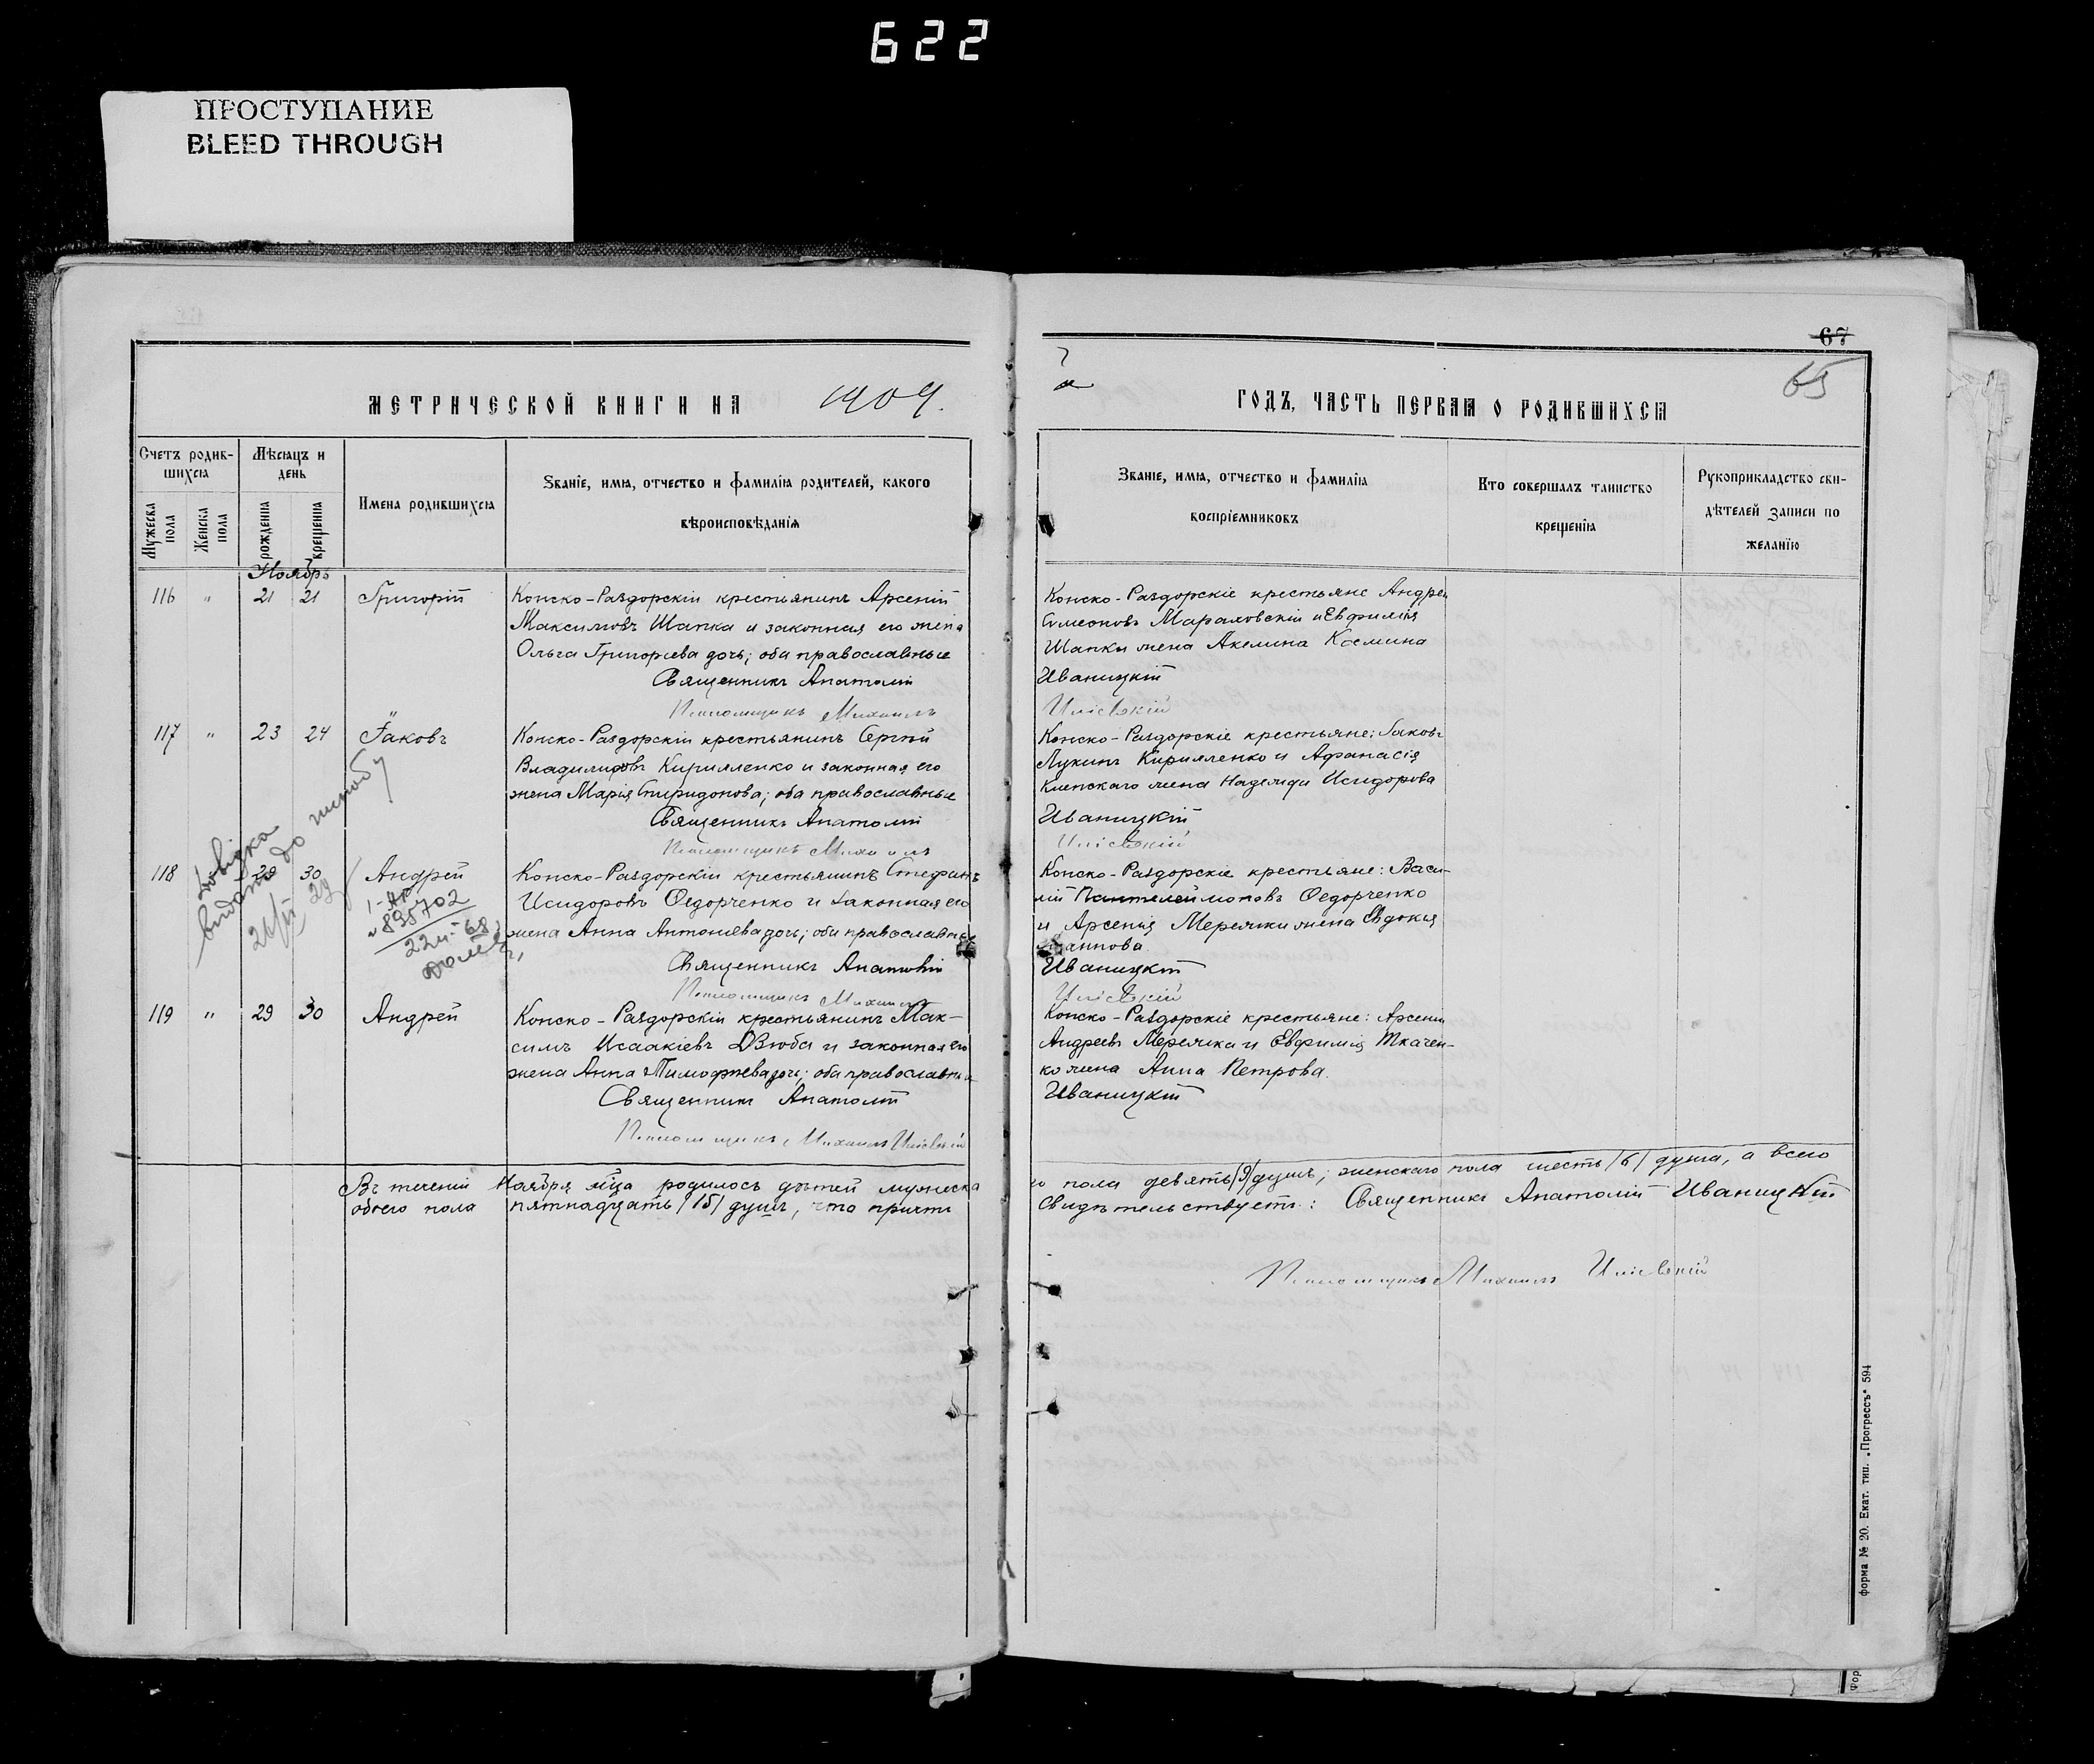 622
ПРОСТУПАНИЕ
BLEED THROUGH
67
65
МЕТРИЧЕСКОЙ КНИГИ НА 1909.
ГОДЪ, ЧАСТЬ ПЕРВАЯ О РОДИВШИХСЯ
Счетъ родив-
шихся
Мужеска пола
Женска пола
Мѣсяцъ и
день
рожденія
крещенія
Имена родившихся
Званіе, имя, отчество и фамилія родителей, какого
вѣроисповѣданія
Званіе, имя, отчество и фамилія
воспріемниковъ
Кто совершалъ таинство
крещенія
Рукоприкладство сви-
дѣтелей записи по
желанію
Ноябрь
116 " 21 21 Григорій
Конско-Раздорскій крестьянинъ Арсеній
Максимовъ Шапка и законная его жена
Ольга Григорьева дочь; оба православные
Священникъ Анатолій
Псаломщикъ Михаилъ
Конско-Раздорскіе крестьяне Андрей
Симеоновъ Мараховскій и Евфимія
Шапки жена Акелина Космина
Иваницкій
117 " 23 24 Іаковъ
Конско-Раздорскій крестьянинъ Сергѣй
Владиміровъ Кирилленко и законная его
жена Марія Спиридонова; оба православные
Священникъ Анатолій
Псаломщикъ Михаилъ
Конско-Раздорскіе крестьяне; Іаковъ
Лукинъ Кирилленко и Афанасія
жена Надежда Исидорова
Иваницкій
118 29 30 Андрей
довідка
видана до шлюбу
895702
22
68
Конско-Раздорскій крестьянинъ Стефанъ
Исидоровъ Ѳедорченко и законная его
жена Анна Антоніева дочь; оба православные
Священникъ Анатолій
Псаломщикъ Михаилъ
Конско-Раздорскіе крестьяне: Васи-
лій Пантелеймоновъ Ѳедорченко
и Арсенія Мережки жена Евдокія
Иваницкій
119 " 29 30 Андрей
Конско-Раздорскій крестьянинъ Мак-
симъ Исаакіевъ Дзюба и законная его
жена Анна Тимофѣева дочь; оба православные
Священникъ Анатолій
Псаломщикъ Михаилъ
Конско-Раздорскіе крестьяне: Арсеній
Андреевъ Мережка и Евфимія Ткачен-
ко жена Анна Петрова.
Иваницкій
Въ теченіи Ноября мѣца родилось дѣтей мужеска
го пола девять /9/ душъ; женскаго пола шесть /6/ душъ, а всего
обоего пола пятнадцать /15/ душъ, что причтъ
свидѣтельствуетъ: Священникъ Анатолій Иваницкій
Псаломщикъ Михаилъ
форма № 20. Екат. тип. „Прогрессъ" 594